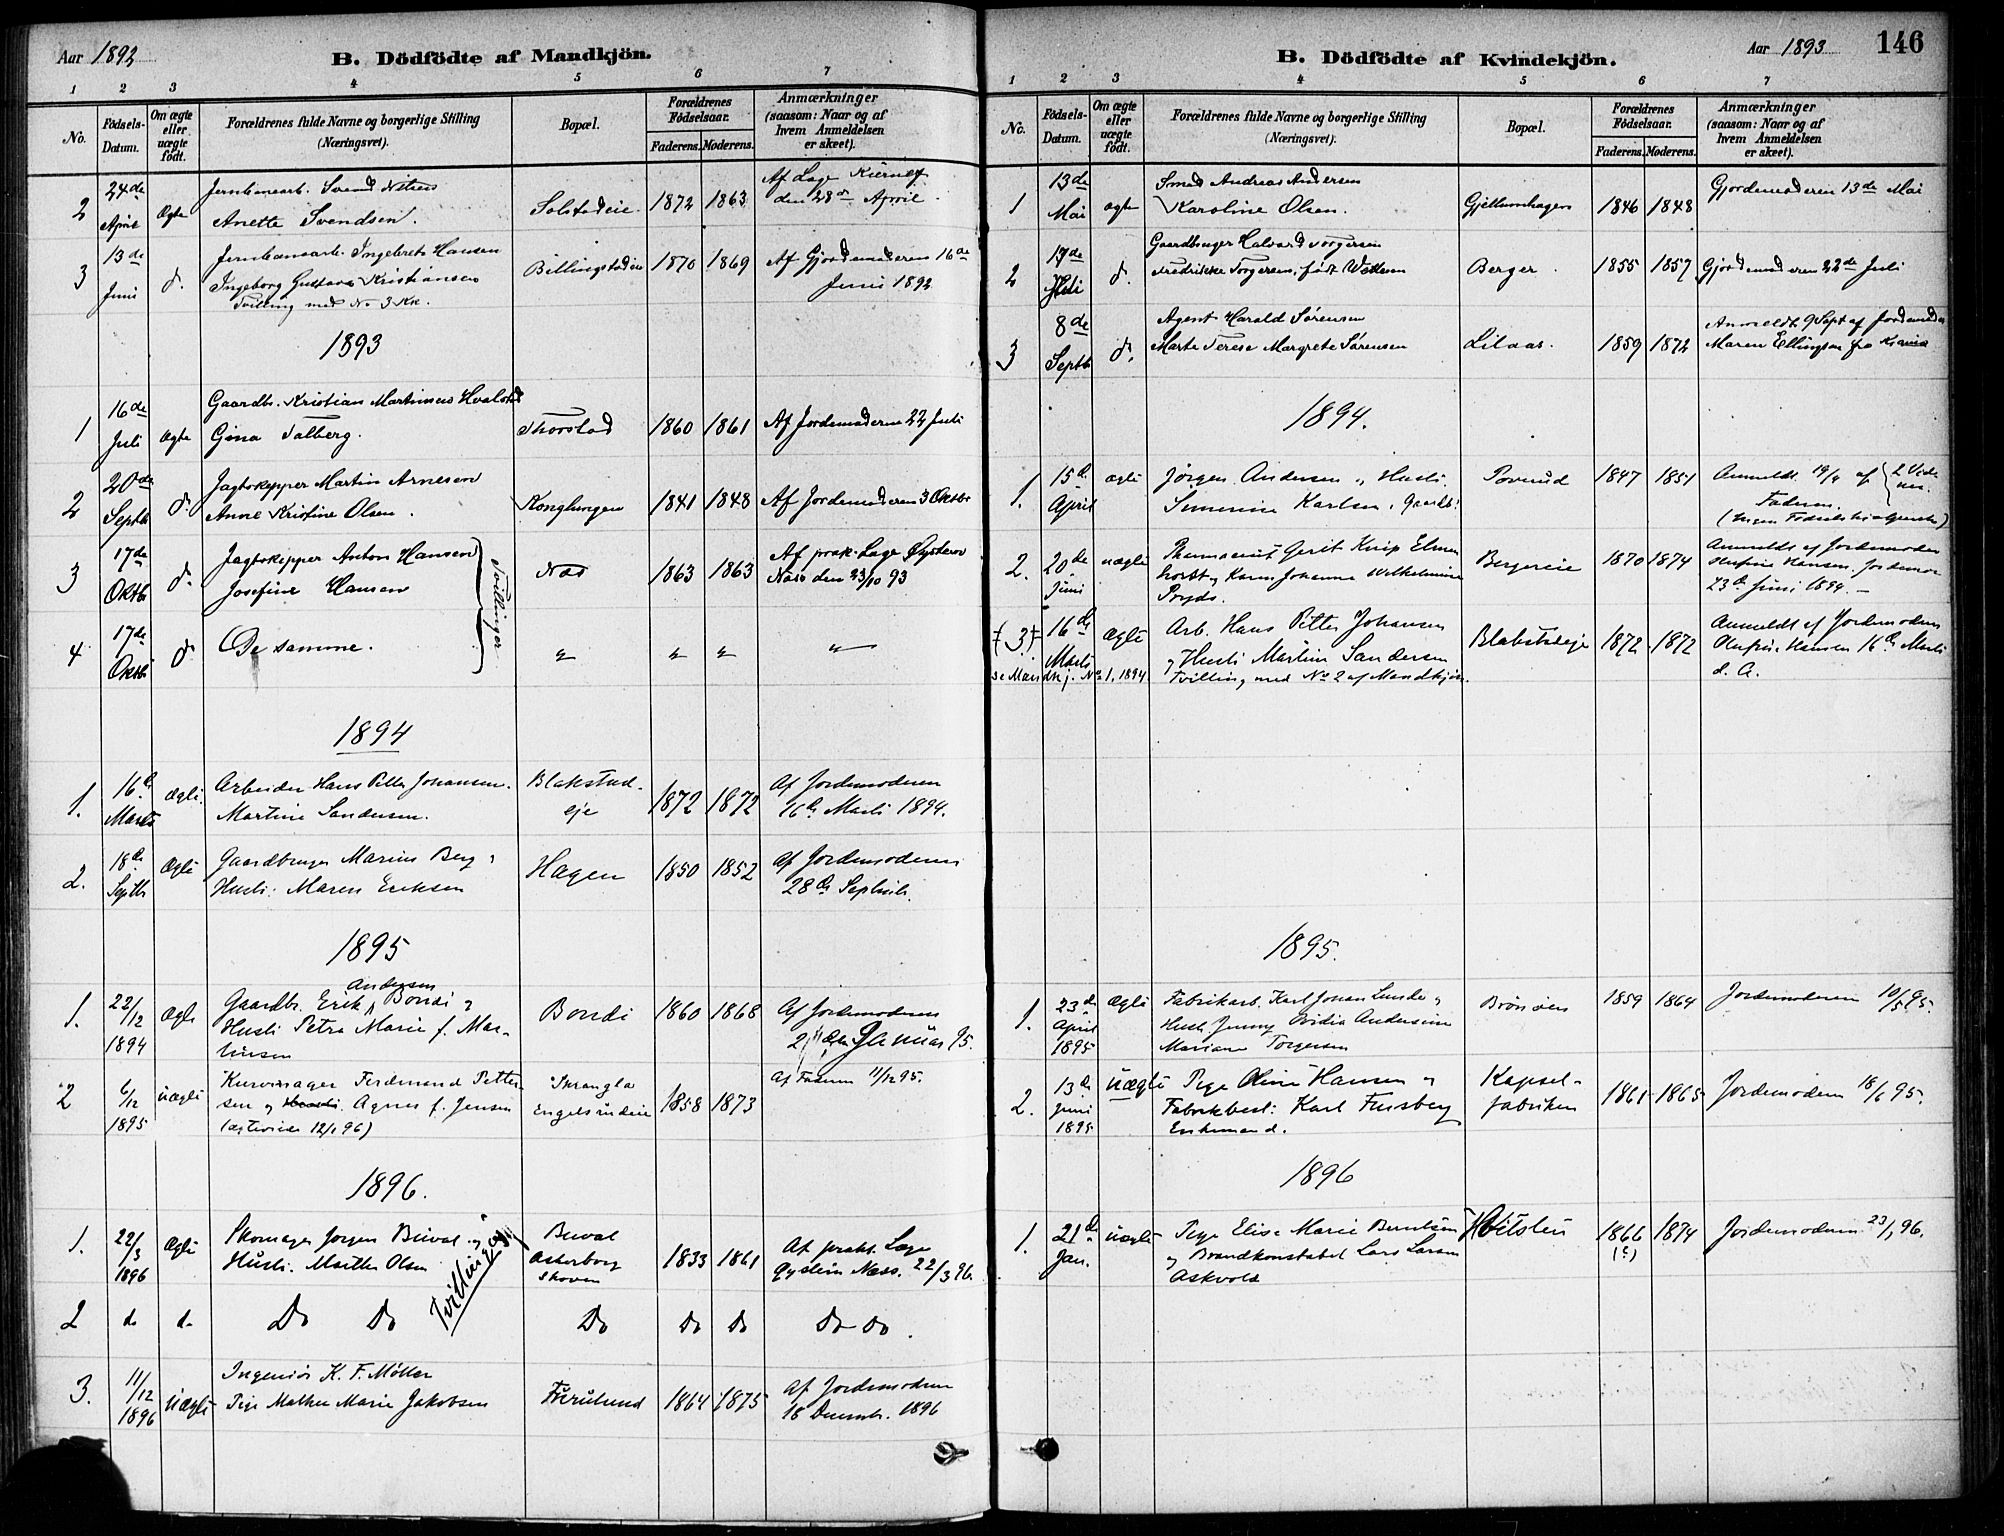 Aar 1892
B. Dödfödte af Mandkjön.
1 2 3 4 5 6 7
No.
Födsels-Datum.
Om ægte eller uægte født.
Forældrenes fulde Navne og borgerlige Stilling
(Næringsvei).
Bopæl.
Forældrenes Fødselsaar.
Faderens. Moderens.
Anmærkninger
(saasom: Naar og af
hvem Anmeldelsen
er skeet).
2 24de April Ægte
Jernbanearb. Svend
Anette Svendsen.
Solstadeie. 1872 1863
Af Læge
den 28de April.
3 13de Juni d.
Jernbanearb. Ingebret Hansen
Ingeborg Gustava Kristiansen
Tvilling med No 3 Kk.
Billingstadeie 1870 1869
Af Gjordemoderen 16de
Juni 1892
1893
1 16de Juli Ægte
Gaardbr. Kristian Martinsen Hvalstad
Gina Talberg.
Thorstad 1860 1861 Af Jordemoderen 22 Juli
2 20de Septb d.
Jagtskipper Martin Arnesen
Anne Kristine Olsen.
Konglungen 1841 1848 Af Jordemoderen 3 Oktbr
3 17de Oktbr d.
Jagtskipper Anton Hansen
Josefine Hansen
Tvillinger
Næs 1863 1863
Af prak. Læge Øystein
Næss den 23/10 93
4 17de Oktbr d.
De samme.
" " " "
1894
1. 16de Marts Ægte.
Arbeider Hans Petter Johansen.
Martine Sandersen.
Blakstad-
eje
1872 1872
Af Jordemoderen
16de Marts 1894.
2. 18de Septbr Ægte
Gaardbruger Marius Berg,
Hustr. Maren Eriksen
Hagen 1850 1852
Af Jordemoderen
28de Septbr.
1895
1. 22/12 1894 Ægte
Andersen
Gaardbr. Erik Bondi og
Hustr. Petra Marie f. Mar-
tinsen
Bondi 1860 1868
Af Jordemoderen
2 6/12 1895 uægte
Kurvmager Ferdinand Petter-
sen og Agnes f. Jensen
12/1 96)
Skrangla
1858 1873
Af Faderen 11/12 95.
1896.
1. 22/3 1896 Ægte
Skomager Jørgen Buval og
Hustr. Marthe Olsen
Tvillinger
Buval
Askerborg
skoven
1833 1861
Af prakt. Læge
Øystein Næss. 22/3 96.
2 do do Do Do Do Do Do Do Do.
3. 11/12 1896 Uægte
Ingeniør K. F. Møller
Pige Mathea Marie Jakobsen
Furulund 1864 1875
Af Jordemoderen
18 Decembr. 1896
Aar 1893 146
B. Dödfödte af Kvindekjön.
1 2 3 4 5 6 7
No.
Födsels-Datum.
Om ægte eller uægte födt.
Forældrenes fulde Navne og borgerlige Stilling
(Næringsvei).
Bopæl.
Forældrenes Fødselsaar.
Faderens. Moderens.
Anmærkninger
(saasom: Naar og af
hvem Anmeldelsen
er skeet).
1 13de Mai ægte
Smed Andreas Andersen
Karoline Olsen.
Gjellumhagen 1846 1848 Gjordemoderen 13de Mai
2 17de Juli d.
Gaardbruger Halvard Torgersen
Fredrikke Torgersen, født
Berger. 1855 1857 Gjordemoderen 22de Juli
3 8de Septb d.
Agent Harald Sørensen
Marte Terese Margrete Sørensen
Lilaas. 1859 1872
Anmeldt 9 Sept af Jordemoder
Maren Ellingsen fra Krania
1894.
1. 15de April ægte
Jørgen Andersen og Hustr.
Simenine Karlsen, Gaardb.
1847 1851
Anmeldt 19/4 af
Faderen.
2 Vidner.
2. 20de Juni uægte
Pharmaceut Gerit Knip Elmen
horst og Karen Johanna Wilhelmine
Bergereie 1870 1874
Anmeldt af Jordemoder
Olufine Hansen, Jordemor
23de Juni 1894. –
3. 16de Marts Ægte
se Mandkj. No 1. 1894
Arb. Hans Petter Johansen
og Hustr. Martine Sandersen
Tvilling med No 2 af Mandkjøn.
Blakstadeje 1872 1872
Anmeldt af Jordemoder
Olufine Hansen 16de Marts
d. A.
1895.
1. 23de April 1895 Ægte
Fabrikarb. Karl Johan Lunde og
Hustr. Jenny Ovidia Andersine
Mariane Torgersen
Brønøen 1859 1864 Jordemoderen 10/5 95.
2. 13de Juni 1895 Uægte
Pige Oline Hansen og
Fabrikbest: Karl Fursberg
Enkemand.
Kapsel-
fabriken
1861 1865 Jordemoderen 18/6 95.
1896
1. 21de Jan. Uægte
Pige Elise Marie Berntsen
og Brandkonstabel Lars Larsen
Askvold
Hvitsten 1866 (?) 1874 Jordemoderen 23/1 96.